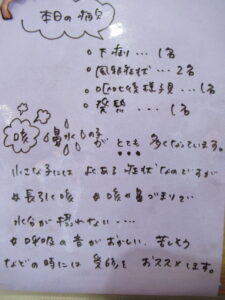 本日の病児
○下痢…1名
○風邪症状…2名
○RSの様子見…1名
○発熱…1名
咳 鼻水の子
が とても 多くなっています。
小さな子には よくある 症状なのですが
＊長引く咳 ＊咳や鼻づまりで
水分が摂れない…
＊呼吸の音がおかしい、苦しそう
などの時には 受診を おススメします。